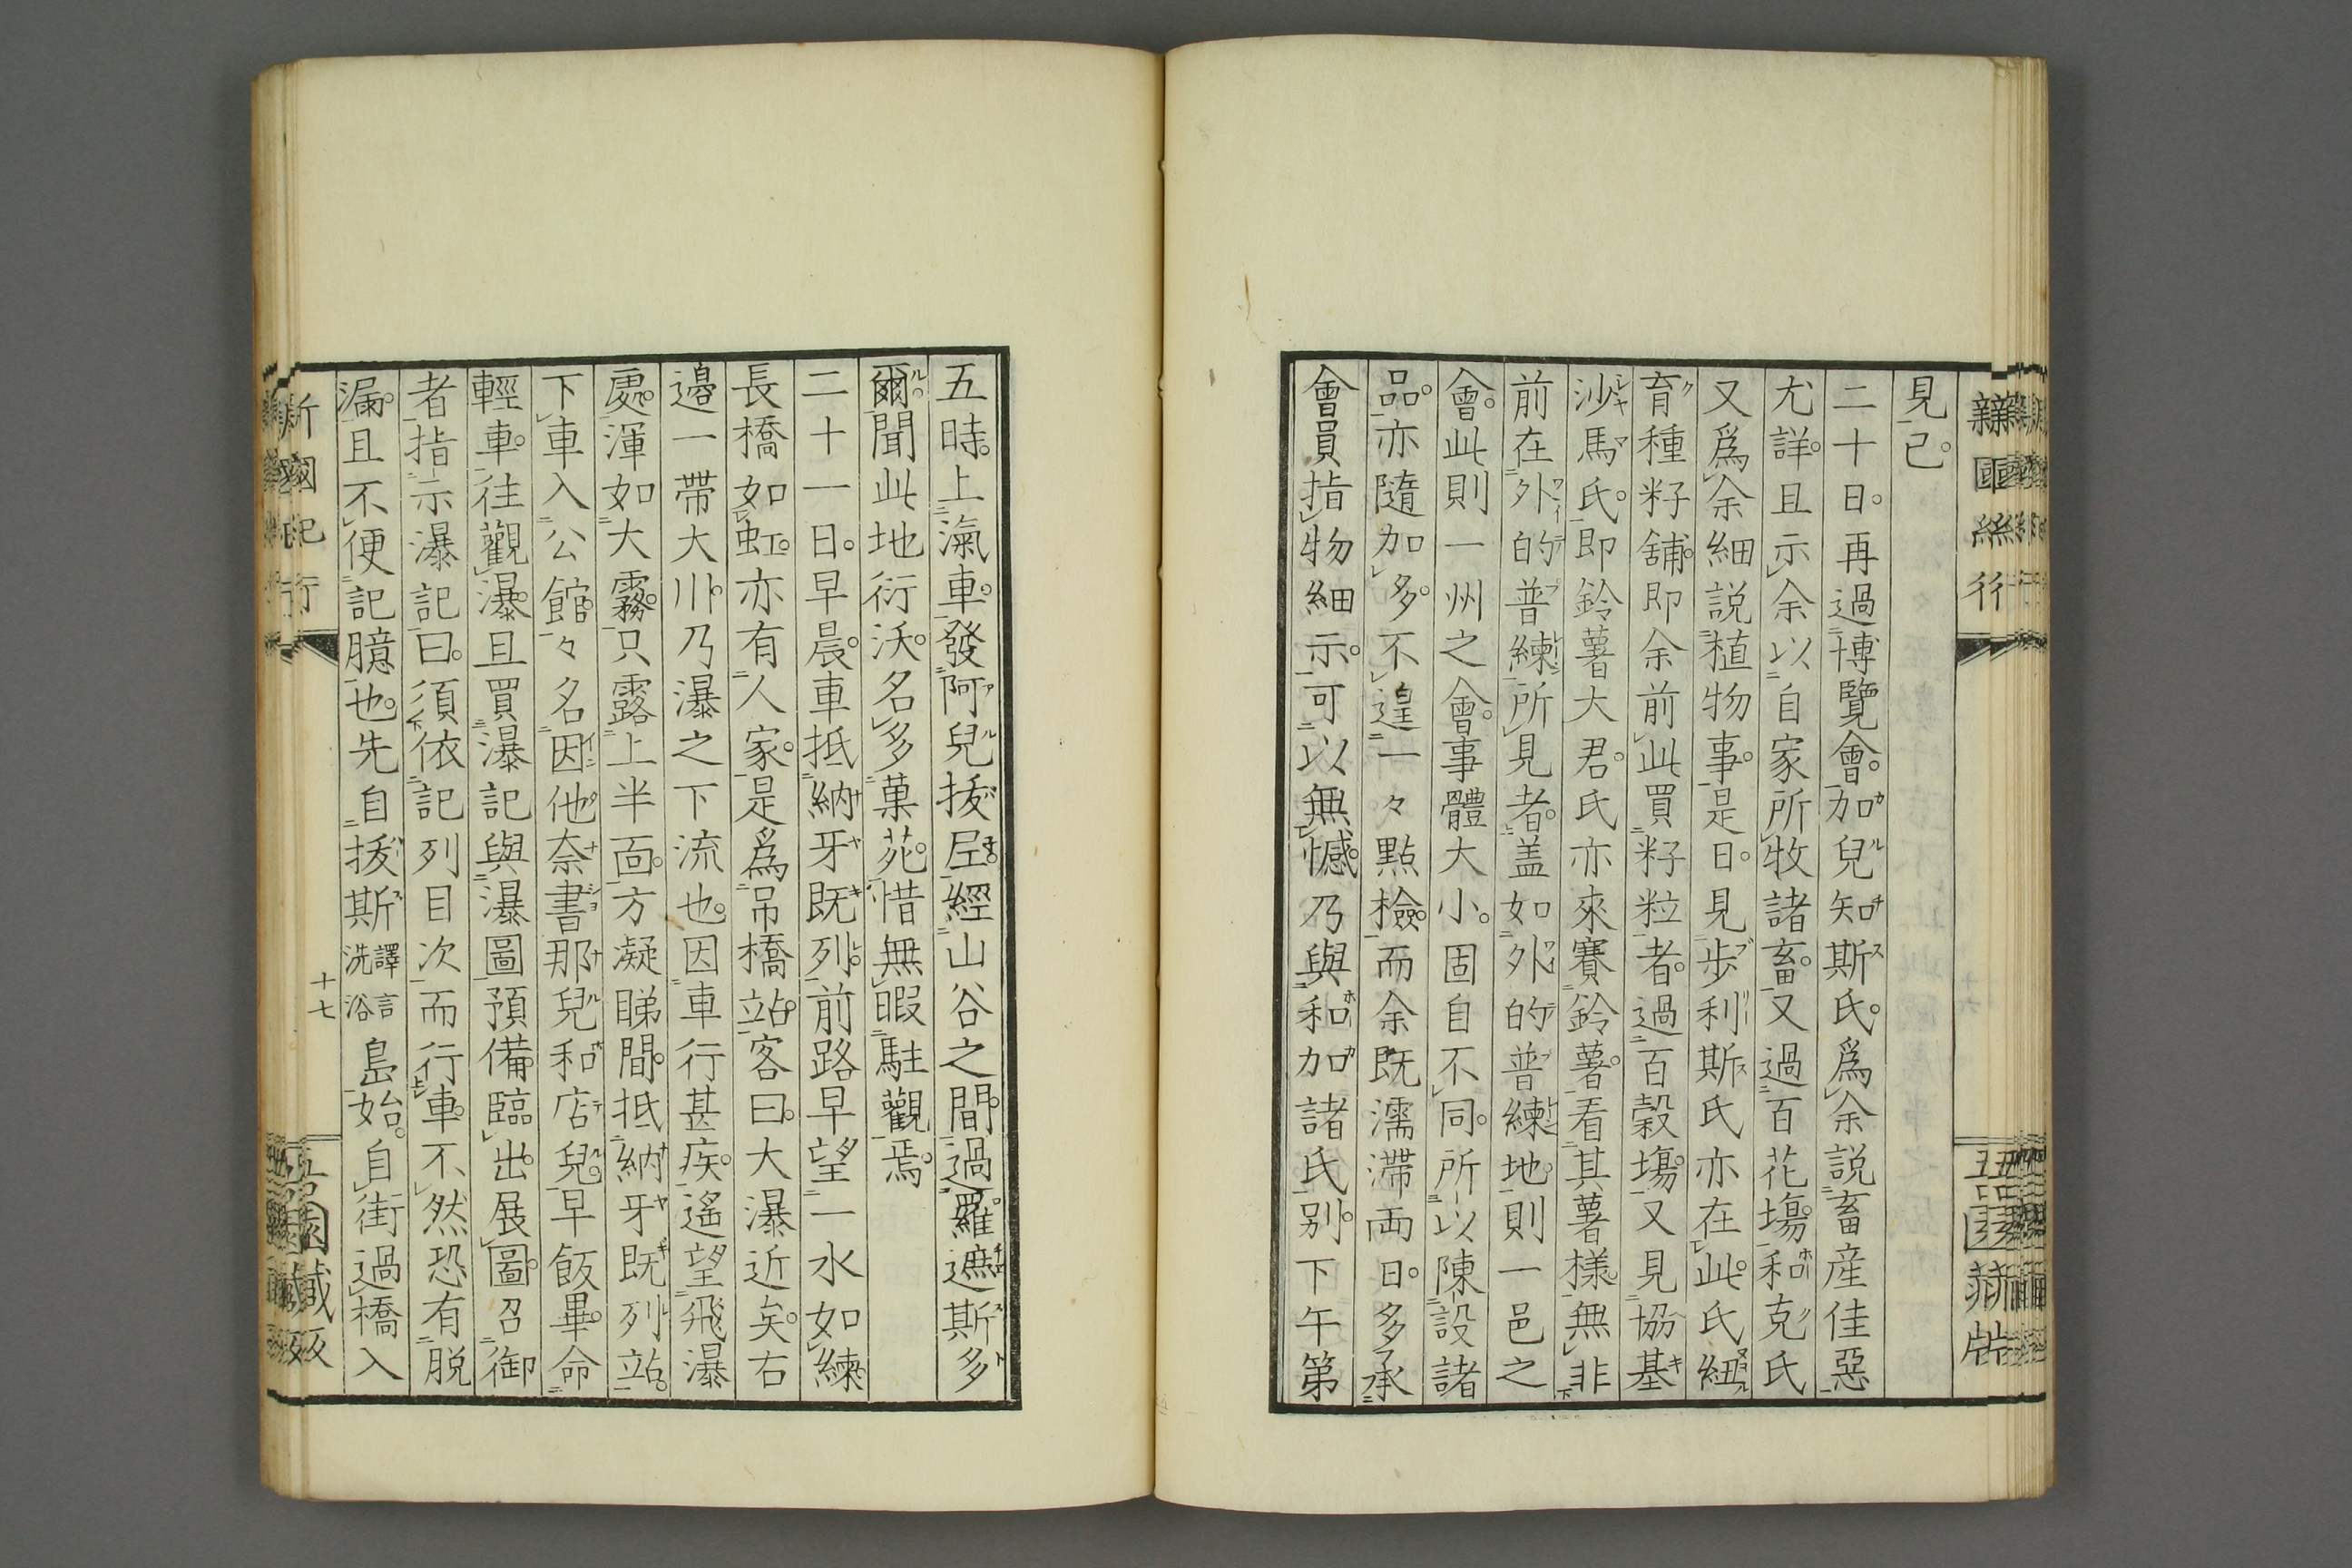 見已。
二十日。再過博覽會。加兒知斯氏。爲余説畜産佳惡
尤詳。且示余以自家所牧諸畜。又過百花塲。和克氏
又爲余細説植物事。是日。見歩利斯氏亦在此。氏紐
育種籽舖。即余前此買籽粒者。過百穀塲。又見協基
沙馬氏。即鈴薯大君。氏亦來賽鈴薯。看其薯樣。無非
前在外的普練所見者。盖如外的普練地。則一邑之
會。此則一州之會。事體大小。固自不同。所以陳設諸
品。亦隨加多。不遑一々點檢。而余既濡滯両日。多承
會員指物細示。可以無憾。乃與和加諸氏別。下午第
五時。上滊車。發阿兒拔𡉏。經山谷之間。過羅遮斯多
爾。聞此地衍沃。名多菓苑。惜無暇駐觀焉。
二十一日。早晨。車抵納牙既列。前路早望一水如練。
長橋如虹。亦有人家。是爲吊橋站。客曰。大瀑近矣。右
邉一帶大川。乃瀑之下流也。因車行甚疾。遙望飛瀑
處。渾如大霧。只露上半面。方凝睇間。抵納牙既列站。
下車入公館。々名因他奈書那兒和店兒。早飯畢。命
輕車。往觀瀑。且買瀑記與瀑圖預備。臨出。展圖。召御
者。指示瀑記曰。須依記列目次而行車。不然恐有脱
漏。且不便記臆也。先自拔斯譯言洗浴島始。自街過橋入
新國紀行
十七